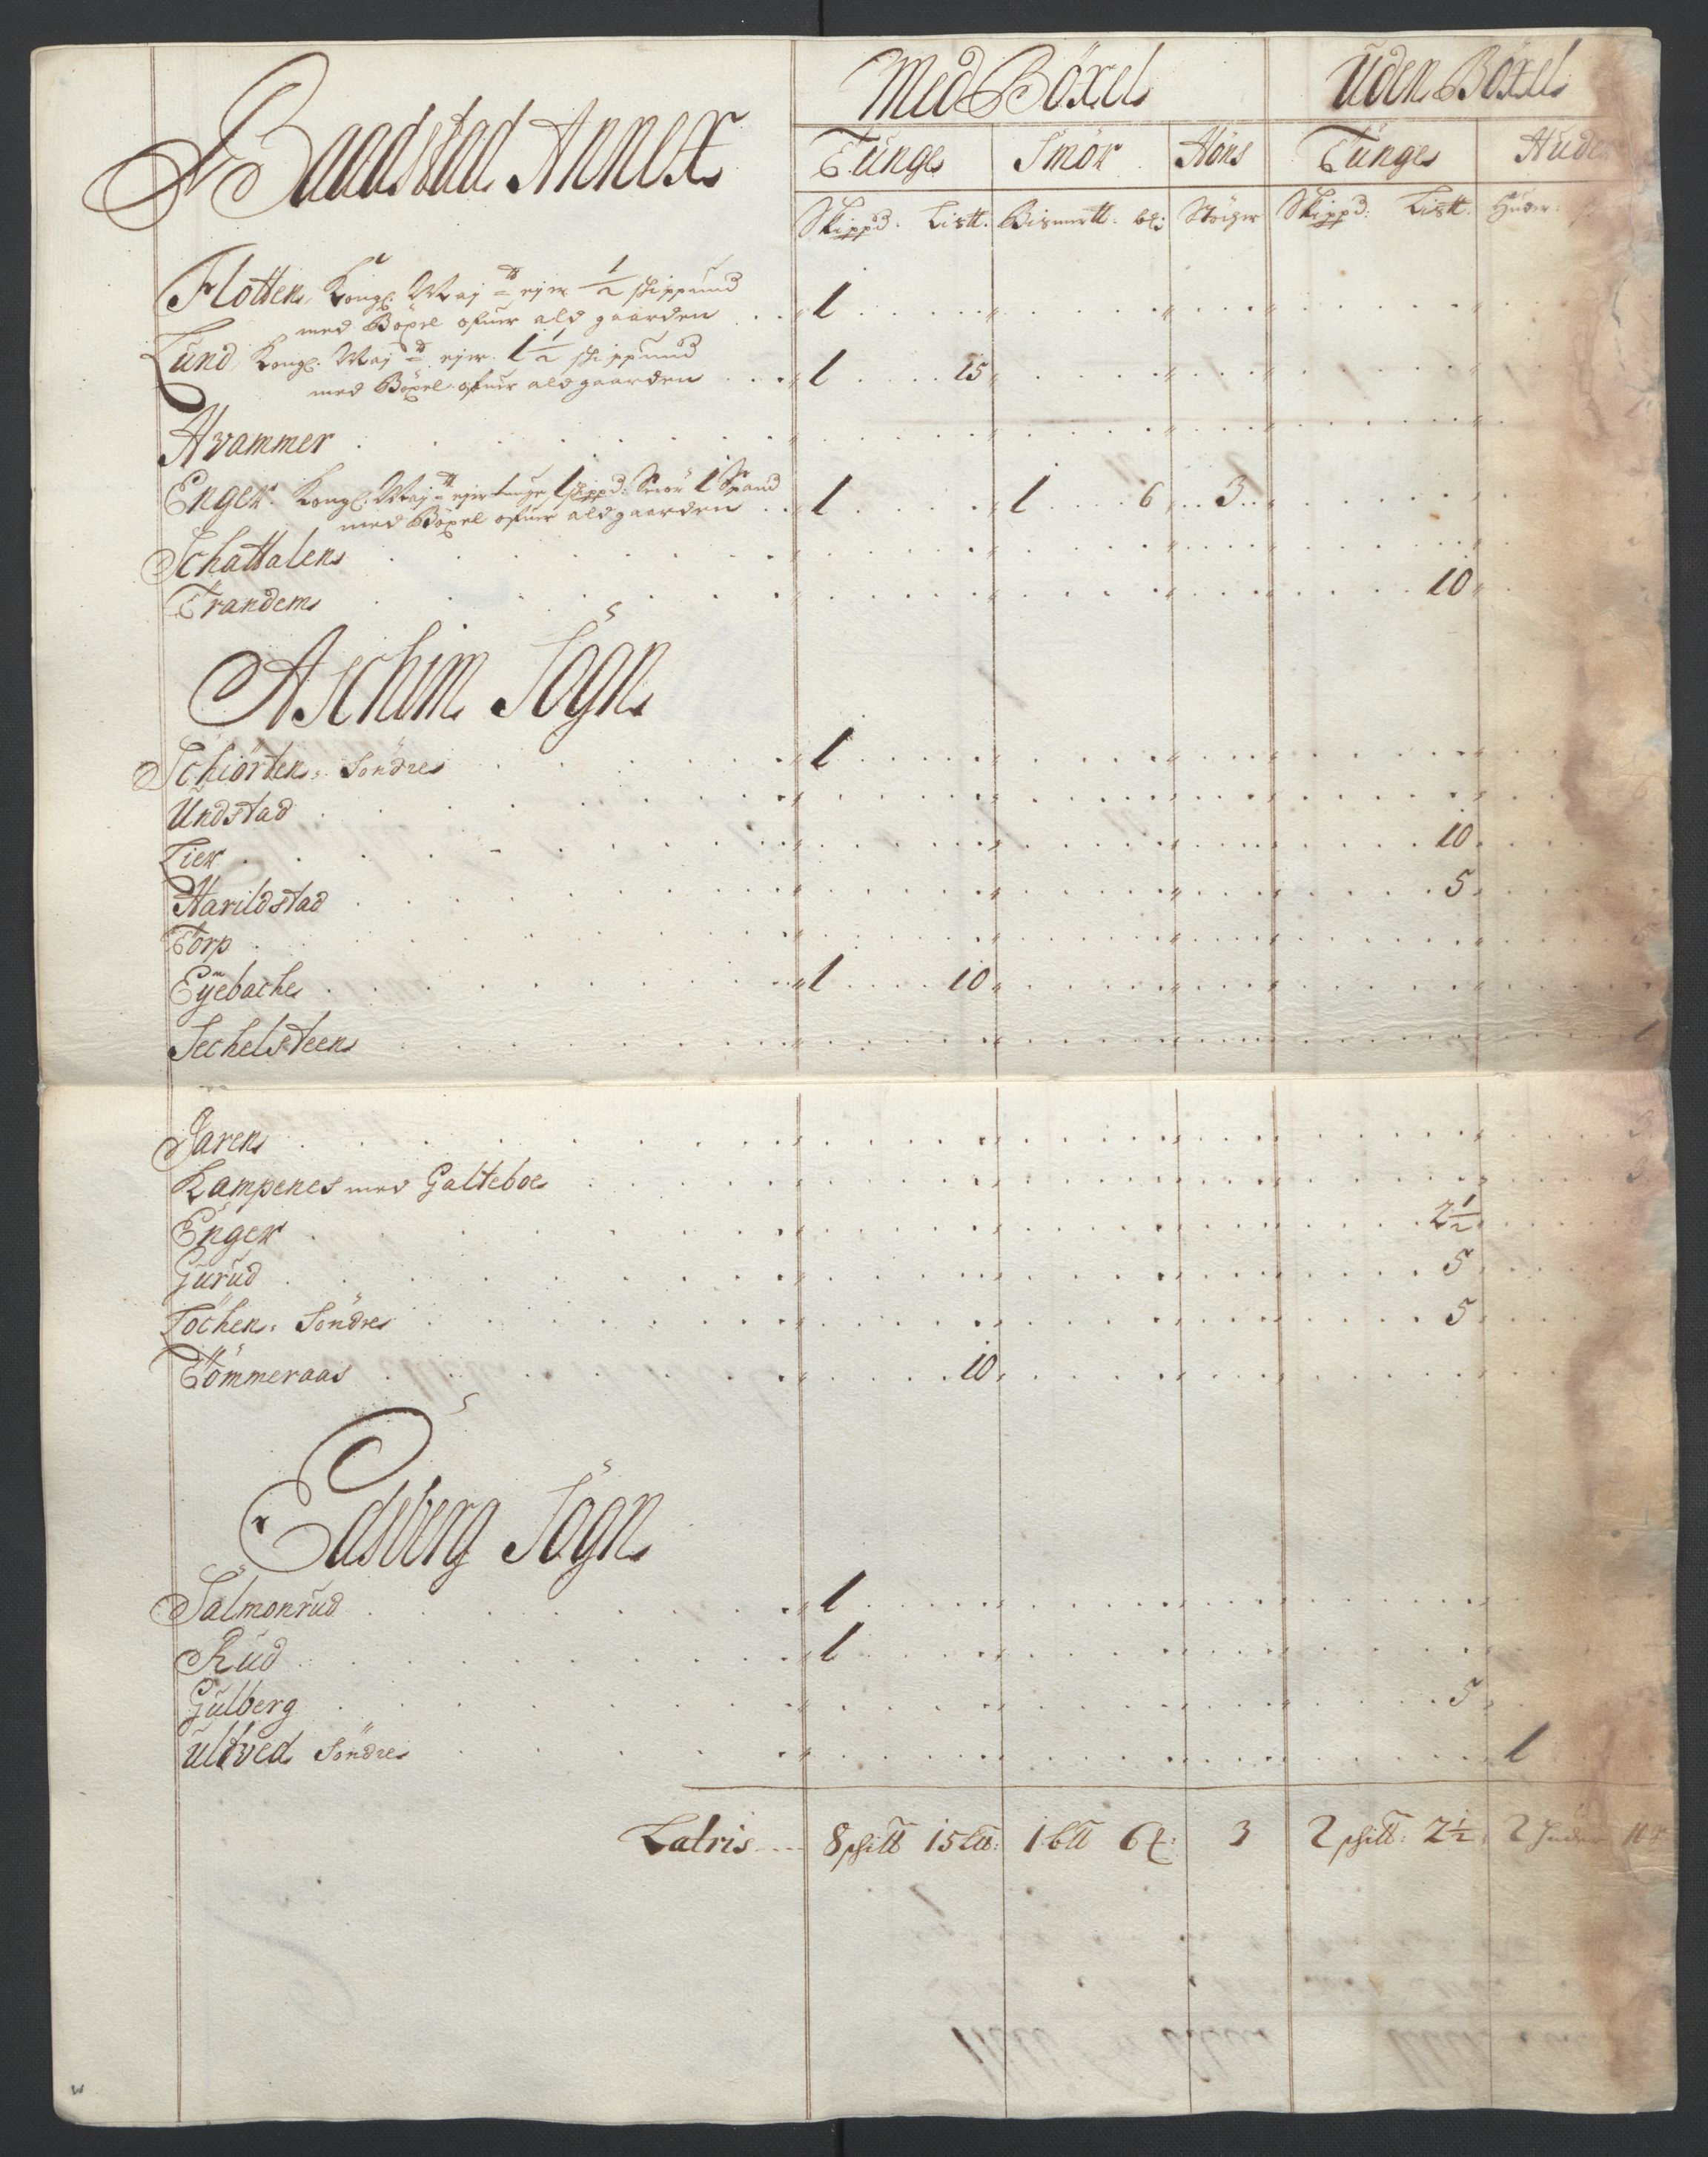 Med Böxel Uden Böxel
Baadstad Annex
Tunge Smör Höns Tunge Huder
Skippd: Listt: Bismertt: Skippd: Listt: Huder:
Flotten, Kongl. Mayts ejer 1/2 skippund 1
med Böxel ofuer ald gaarden
Lund, Kongl. Mayts ejer 1 1/2 skippund 1 15
med Böxel ofuer ald gaarden
Hvammer
Enger. Kongl. Mayts ejer tunge 1 skippd: Smör 1 Spand 1 1 6 3
med Böxel ofuer ald gaarden
Schattalen
Trandem 10
Aschim Sogn
Schiörten, Söndre 1
Undstad
Lier 10
Harildstad 5
Torp 5
Eyebache 1 10
Sechelsteen 1
Jaren
Kampenes med Galteboe
Enger 2 1/2
Gurud 5
Löchen, Söndre 5
Tömmeraas 10
Edsberg Sogn
Salmonrud 1
Rud 1
Gulberg 5
Ultved Söndre 1
Latris 8 skitt 15 Ltt: 1 btt 6 3 2 skitt: 2 1/2 2 huder 10